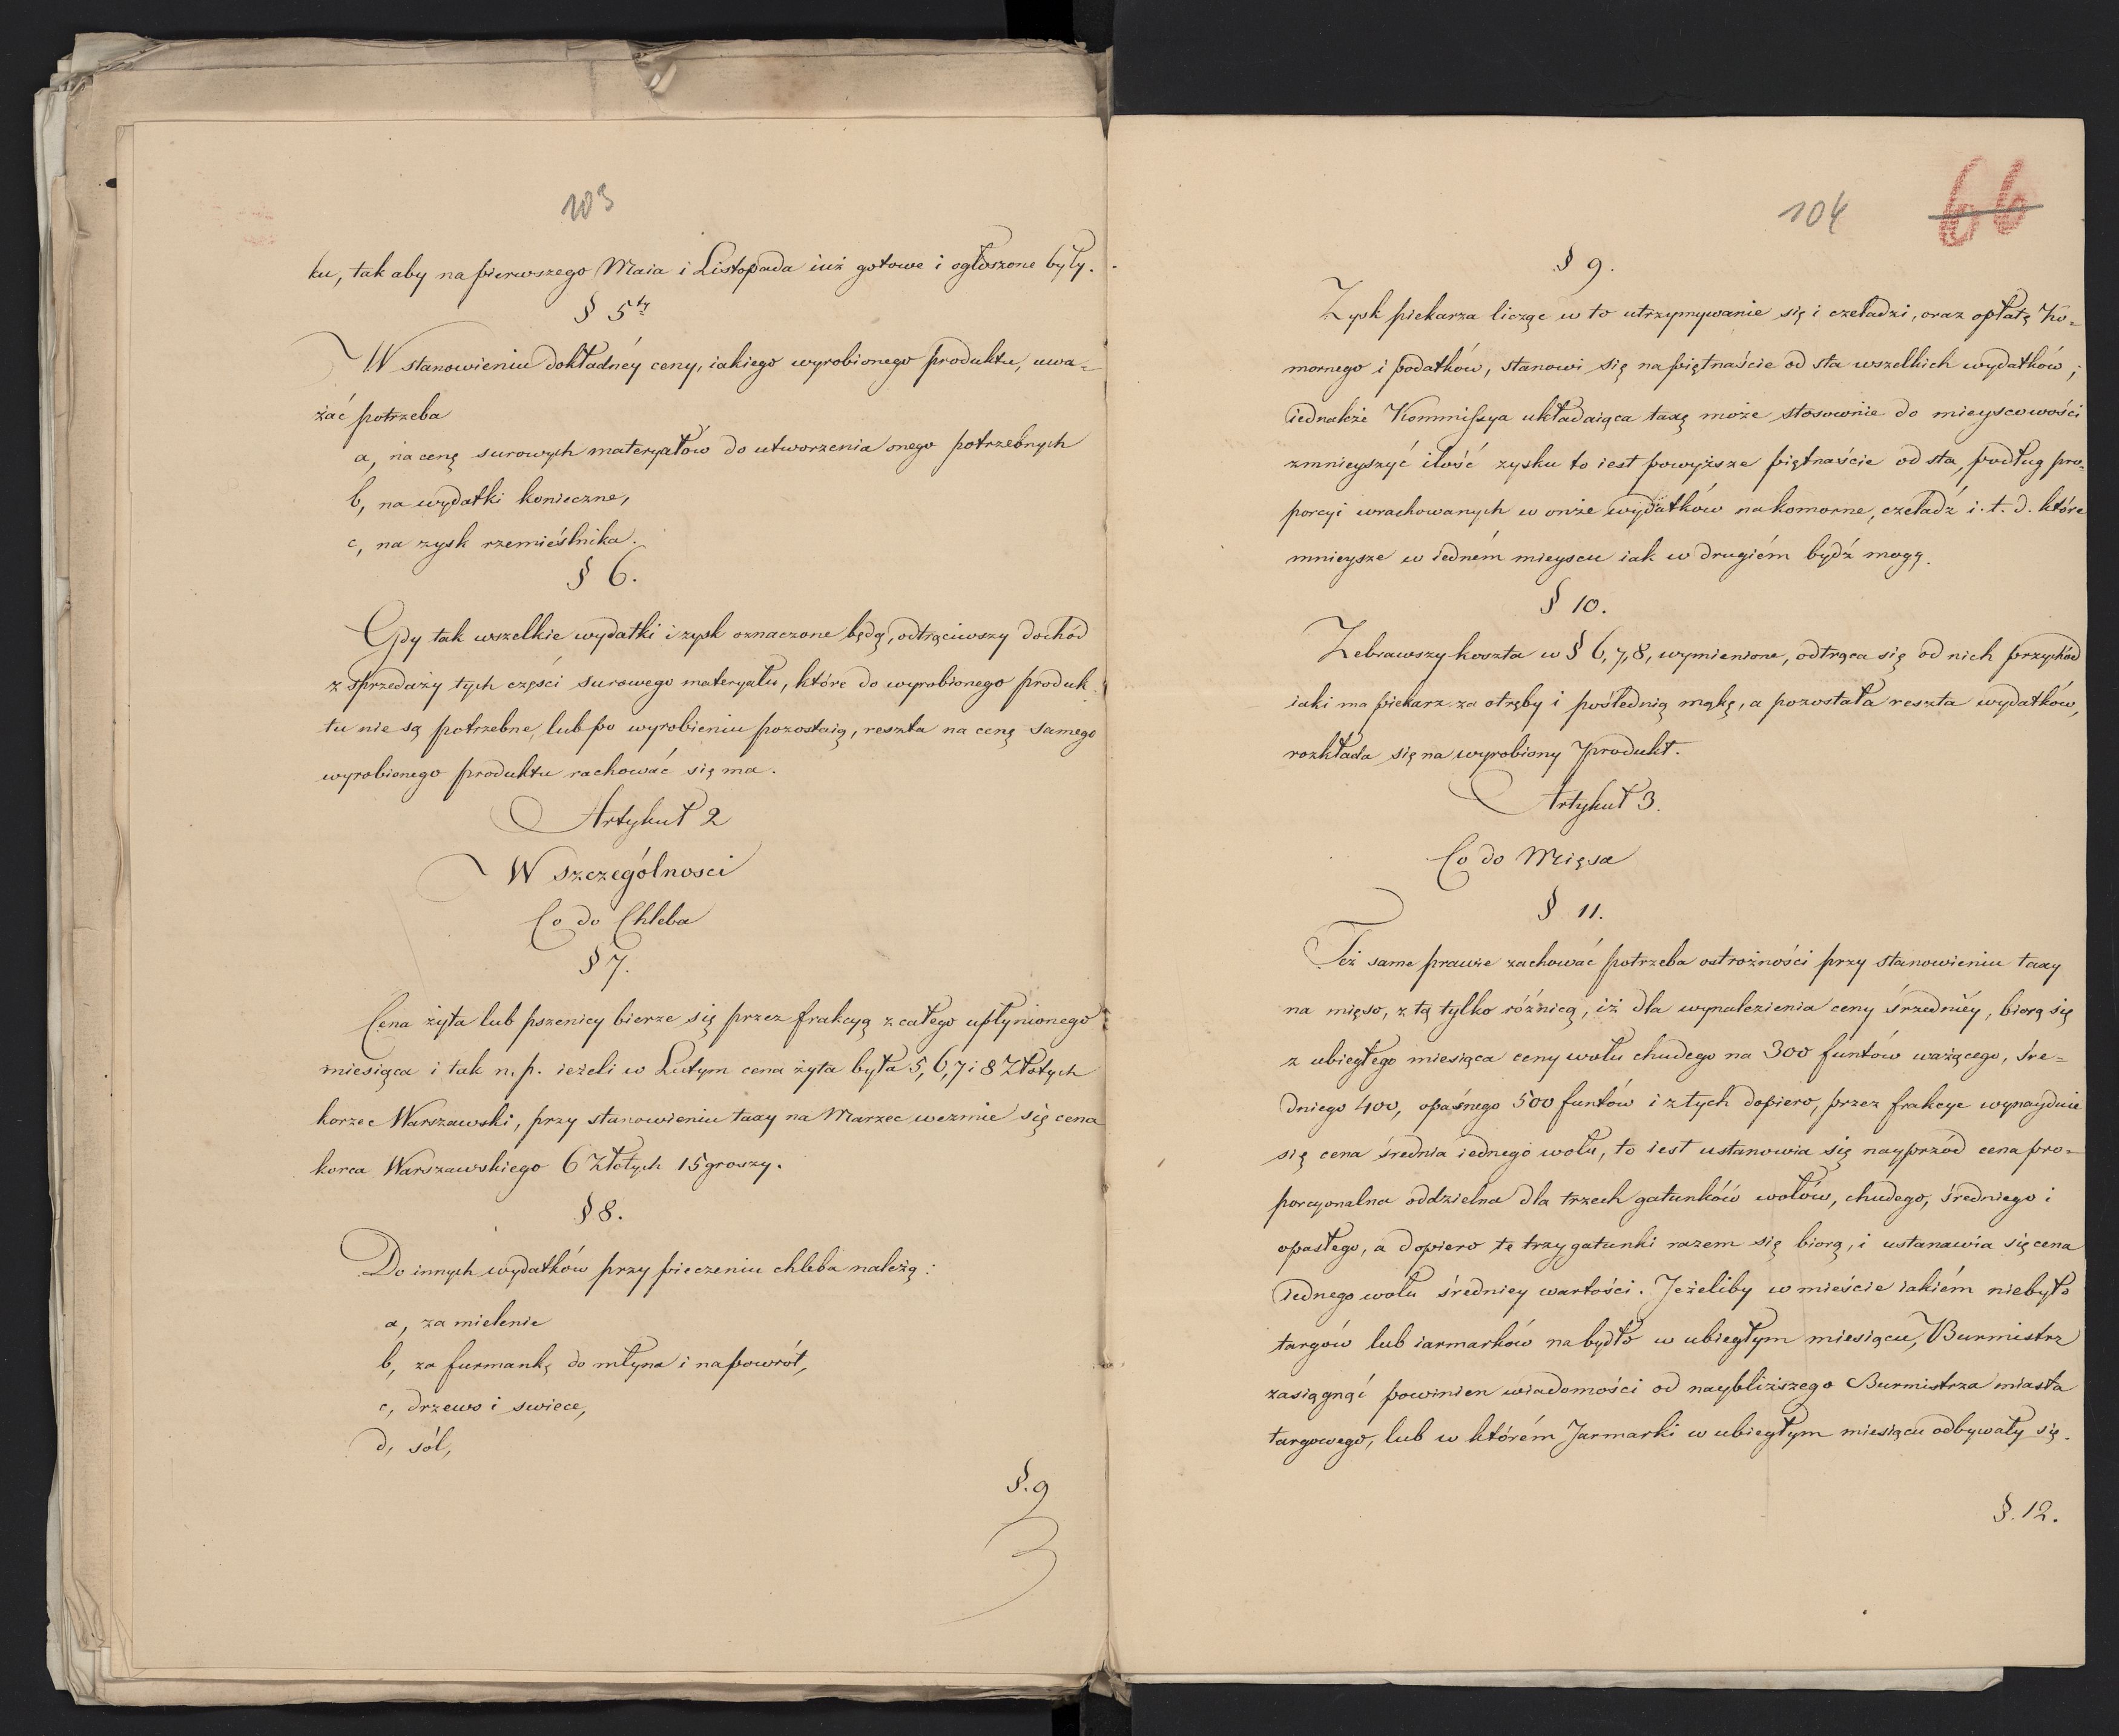 103
ku, tak aby na pierwszego Maia i Listopada iuż gotowe i ogłoszone były.
§ 5ty
W stanowieniu dokładnéy ceny, iakiego wyrobionego produktu, uwa=
żać potrzeba
a, na cenę surowych materyałów do utworzenia onego potrzebnych
b, na wydatki konieczne,
c, na zysk rzemieślnika.
§ 6.
Gdy tak wszelkie wydatki i zysk oznaczone będą, odtrąciwszy dochód
z sprzedaży tych części surowego materyału, które do wyrobionego produk
tu nie są potrzebne, lub po wyrobieniu pozostaią, reszta na cenę samego
wyrobionego produktu rachować się ma.
Artykuł 2
W szczególnosci
Co do Chleba
§ 7.
Cena żyta lub pszenicy bierze się przez frakcyą z całego upłynionego
miesiąca i tak n. p. ieżeli w Lutym cena żyta była 5, 6, 7 i 8 Złotych
korzec Warszawski, przy stanowieniu taxy na Marzec wezmie się cena
korca Warszawskiego 6 Złotych 15 groszy.
§ 8.
Do innych wydatków przy pieczeniu chleba należą:
a, za mielenie
b, za furmankę do młyna i napowrót,
c, drzewo i swiece,
d, sól,
§. 9
104
66
§ 9.
Zysk piekarza licząc w to utrzymywanie się i czeladzi, oraz opłatę Ko=
mornego i podatków, stanowi się na piętnaście od sta wszelkich wydatków;
iednakże Kommissya układaiąca taxę może stosownie do mieyscowości
zmnieyszyć ilość zysku to iest powyższe piętnaście od sta, podług pro=
porcyi wrachowanych w onże wydatków na komorne, czeladź i. t. d. które
mnieysze w iedném mieyscu iak w drugiém bydź mogą.
§ 10.
Zebrawszy koszta w § 6, 7, 8, wymienione, odtrąca się od nich przychód
iaki ma piekarz za otręby i poślednią mąkę, a pozostała reszta wydatków,
rozkłada się na wyrobiony produkt.
Artykuł 3.
Co do Mięsa
§ 11.
Też same prawie zachować potrzeba ostrożności przy stanowieniu taxy
na mięso, z tą tylko różnicą, iż dla wynalezienia ceny śrzedniéy, biorą się
z ubiegłego miesiąca ceny wołu chudego na 300 funtów ważącego, śre=
dniego 400, opaśnego 500 funtów i z tych dopiero, przez frakcye wynayduie
się cena średnia iednego wołu, to iest ustanowia się nayprzód cena pro=
porcyonalna oddzielna dla trzech gatunków wołów, chudego, średniego i
opasłego, a dopiero te trzy gatunki razem się biorą, i ustanawia się cena
iednego wołu średniey wartości. Jeżeliby w mieście iakiém niebyło
targów lub iarmarków na bydło w ubiegłym miesiącu, Burmistrz
zasiągnąć powinien wiadomości od naybliższego Burmistrza miasta
targowego, lub w którém Jarmarki w ubiegłym miesiącu odbywały się.
§. 12.